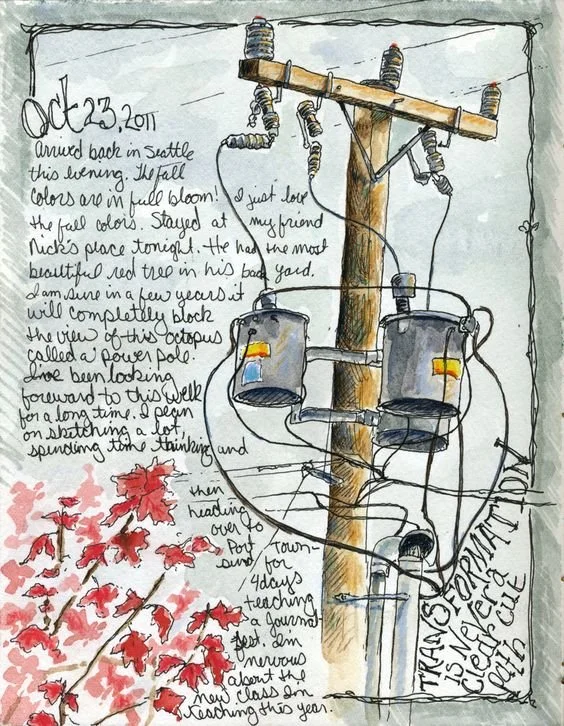 Oct 23, 2011
Arrived back in Seattle
this evening. The fall
colors are in full bloom! I just love
the fall colors. Stayed at my friend
Nick's place tonight. He had the most
beautiful red tree in his back yard.
I am sure in a few years it
will completly block
the view of this octopus
called a power pole.
I've been looking
foreward to this week
for a long time. I plan
on sketching a lot,
spending time thinking and
then
heading
over to
Port Town-
send for
4 days
teaching
a Journal
fest. I'm
nervous
about the
new class I'm
teaching this year.
TRANSFORMATION
is never a
clear
path